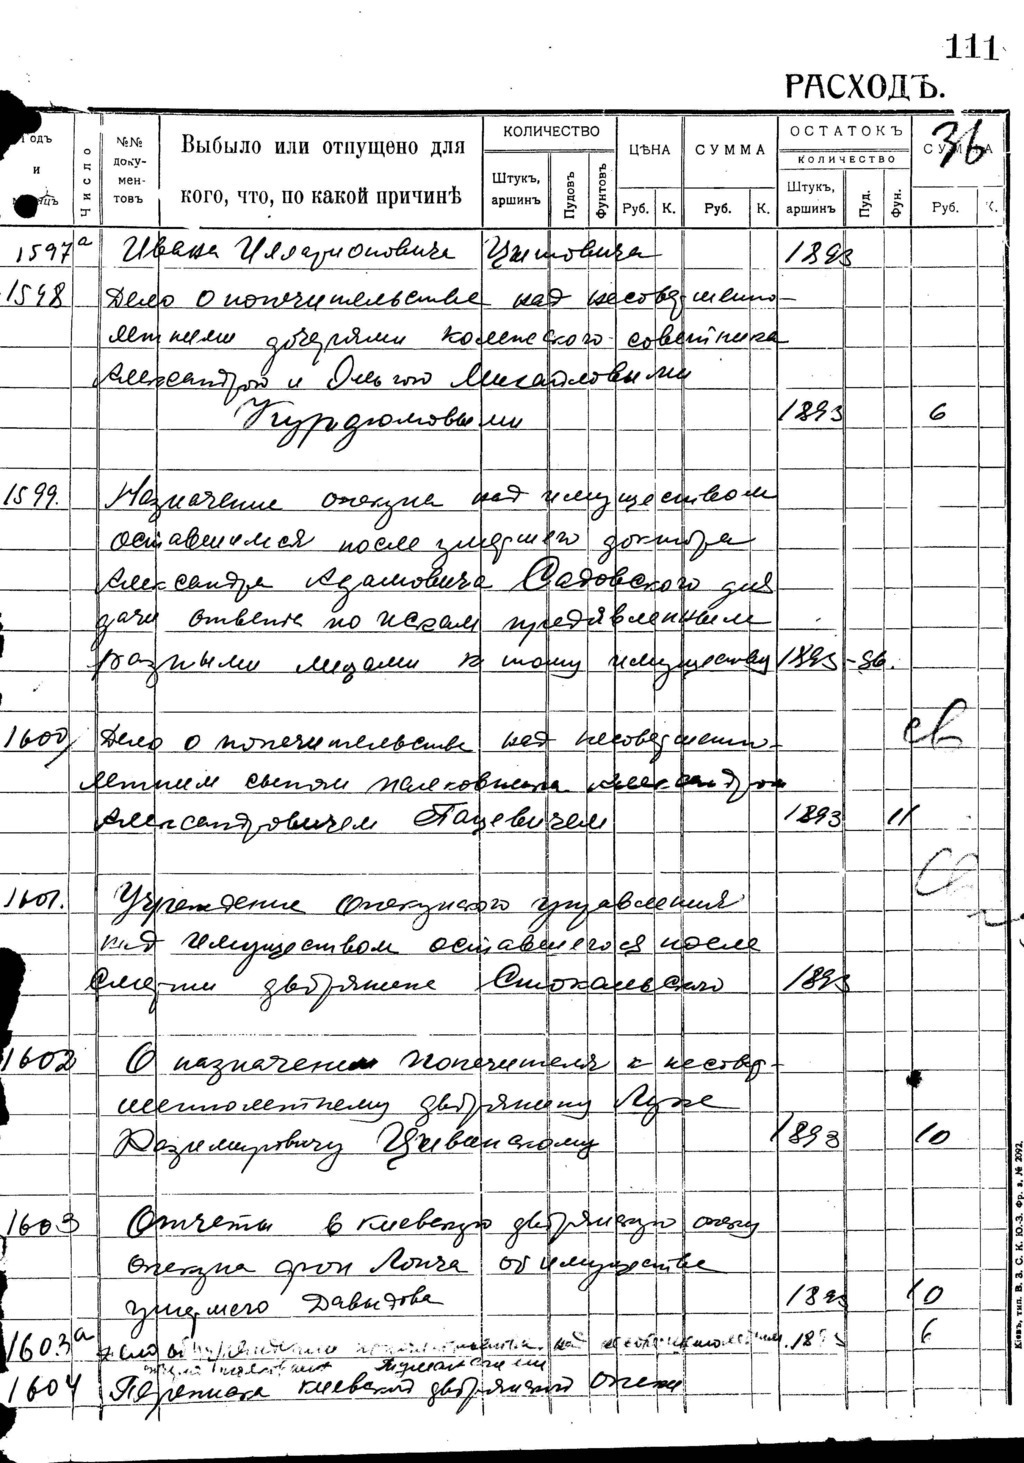 111
РАСХОДЪ.
Годъ и мѣсяцъ
Число
№№ доку-мен-товъ
Выбыло или отпущено для кого, что, по какой причинѣ
КОЛИЧЕСТВО
Штукъ, аршинъ
Пудовъ
Фунтовъ
ЦѢНА
Руб. К.
СУММА
Руб. К.
ОСТАТОКЪ
КОЛИЧЕСТВО
Штукъ, аршинъ
Пуд.
Фун.
СУММА
Руб. К.
36
1597а Ивана Илларионовича Цитовича 1893
1598 Дело о попечительстве над несовершенно-
летними дочерями колежского советника
Александрою и Ольгою Михайловыми
1893 6
1599. Назначение опекуна над имуществом
оставшимся после умершего доктора
Александра Адамовича Садовского для
дачи ответа по искам предявленным
разными лицами к тому имуществу 1893-96.
1600 Дело о попечительстве над несовершенно-
летним сыном полковника Александром
Александровичем Пацевичем 1893 11
св
1601. Учреждение опекунского управления
над имуществом оставшегося после
смерти дворянина Стокальского 1893
1602 О назначении попечителя к несовер-
шеннолетнему дворянину Луке
Казимировичу Циванскому 1893 10
1603 Отчеты в киевскую дворянскую опеку
опекуна фон Лонча об имуществе
умершего Давыдова 1893 10
1603а Дело об учреждении над несовершеннолетним 6
1604 Переписка киевской дворянской опеки
Кіевъ, тип. В. З. С. К. Ю.-З. Фр. а. № 2092.